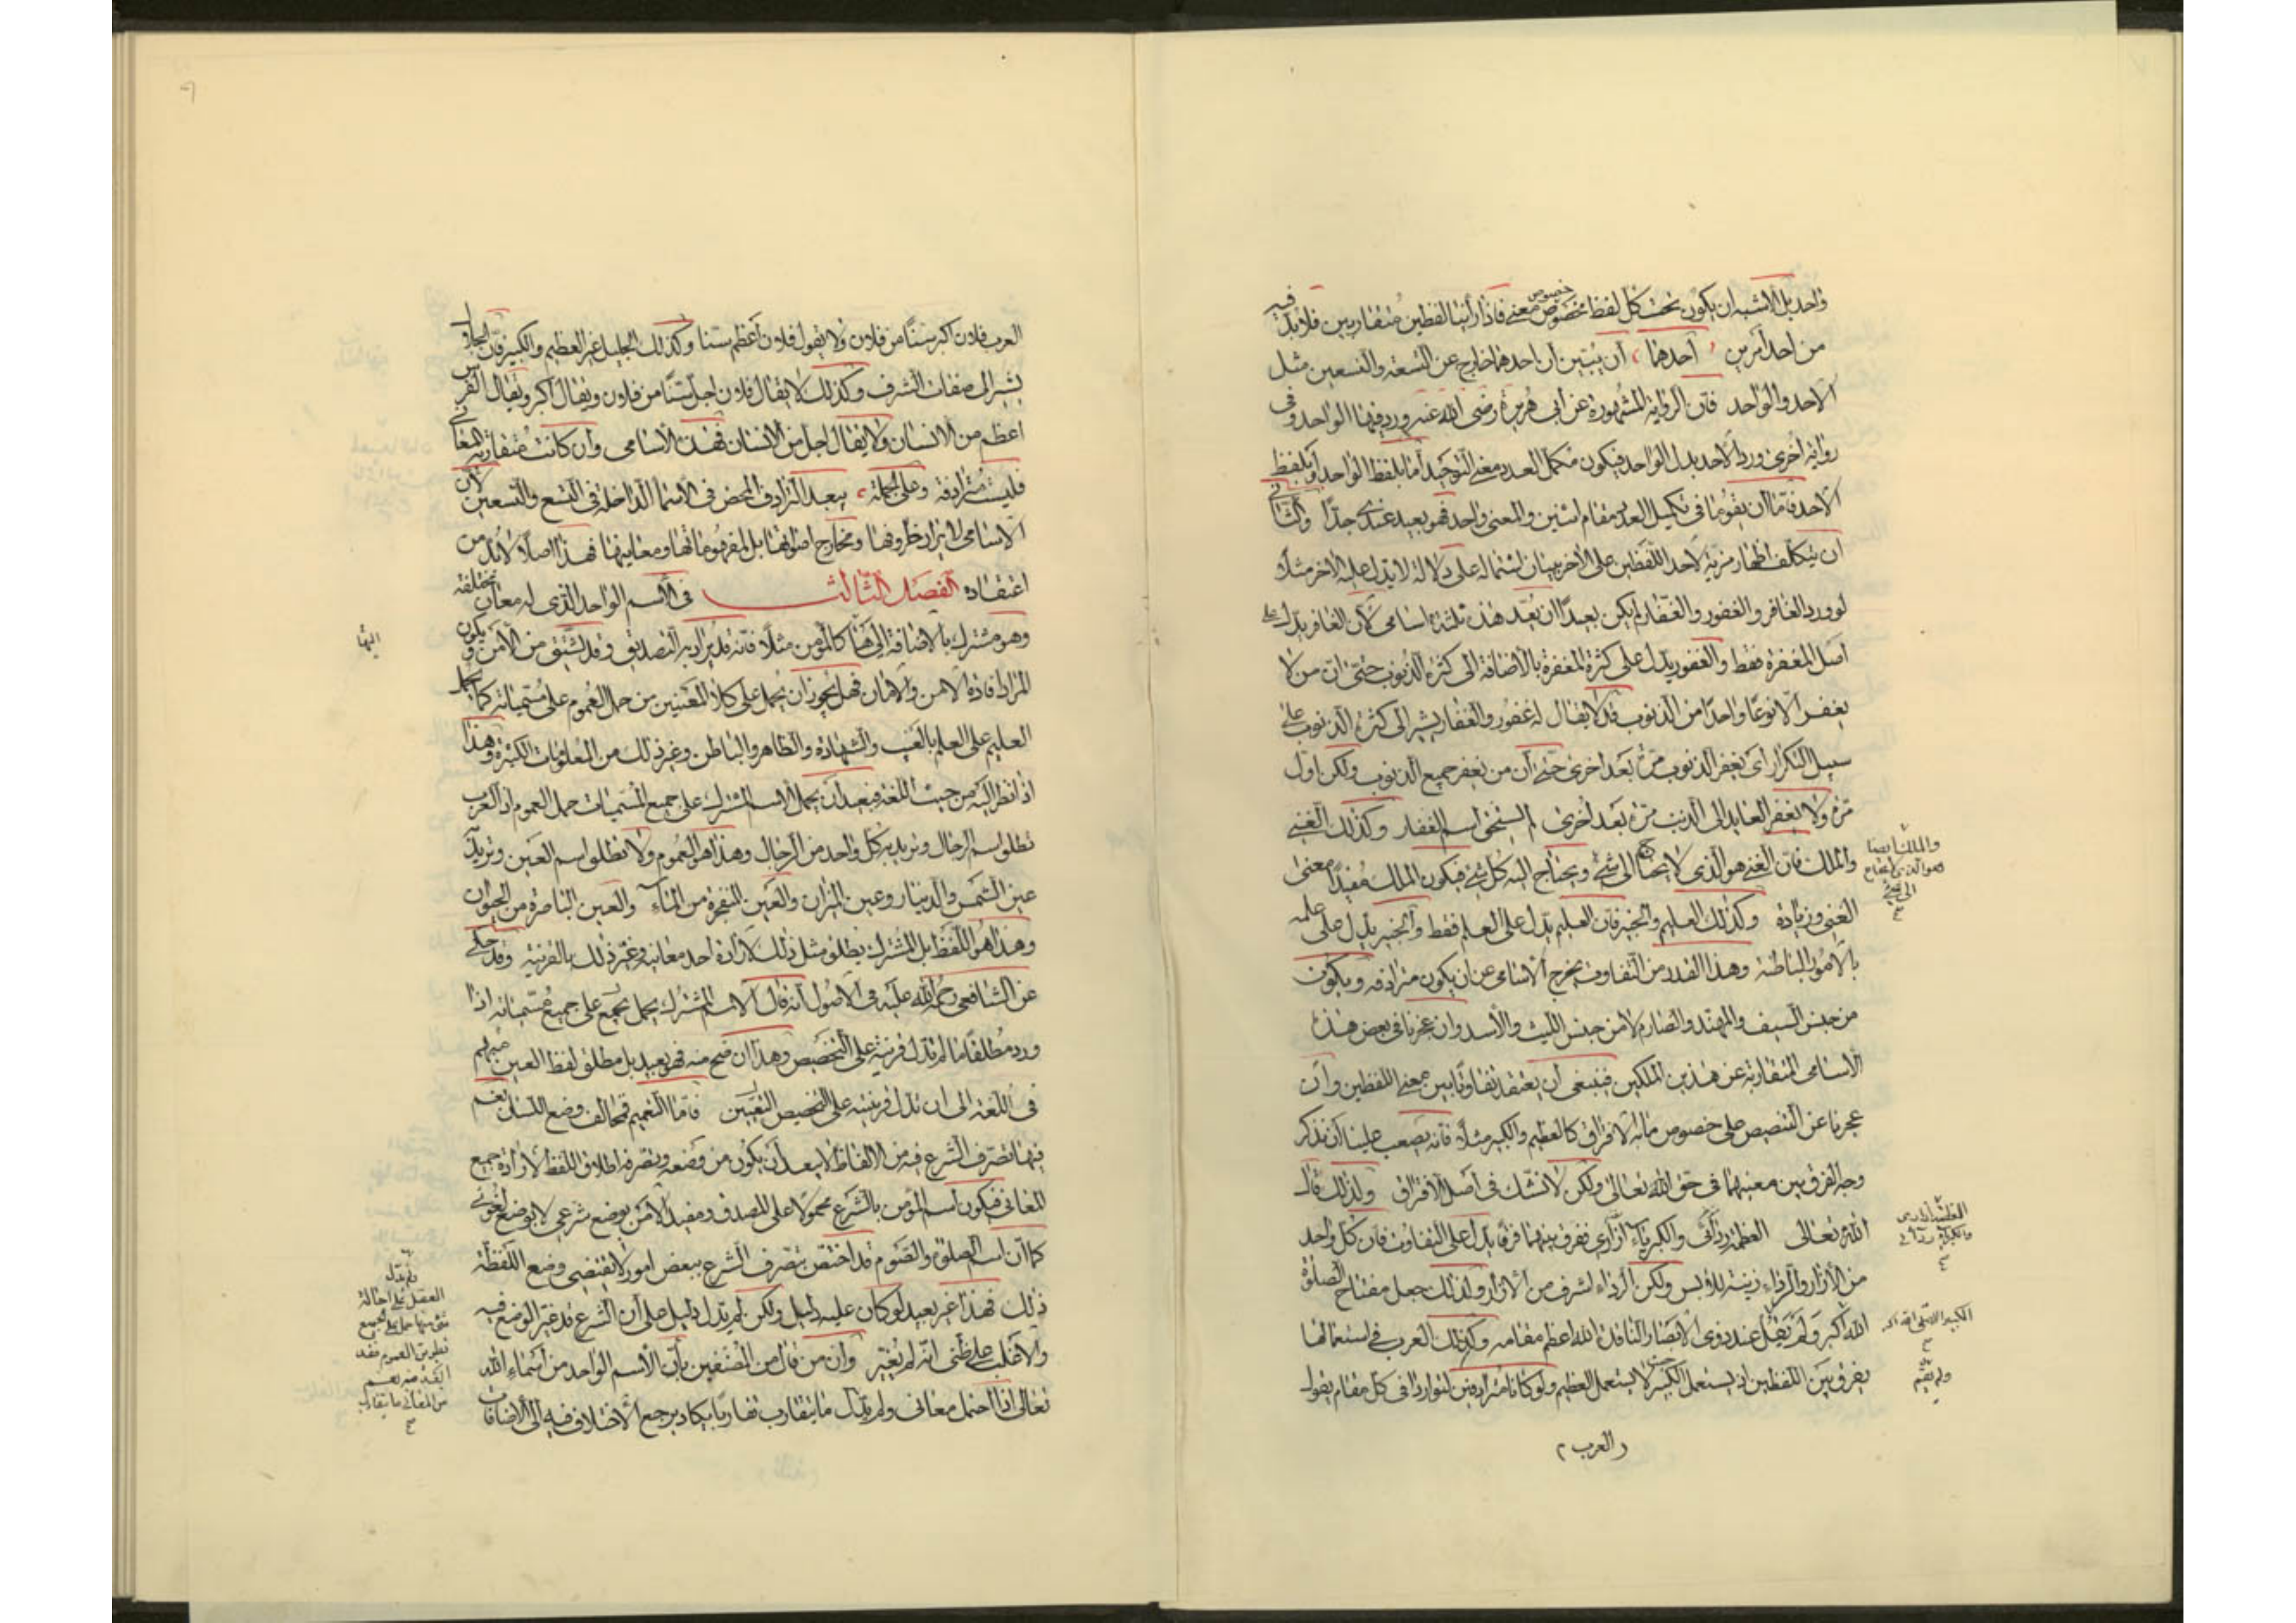 واحد بل الاشبه ان يكون تحت كل لفظ مخصوص خصوص معنى فاذا رأينا لفظين متقاربين فلا بد فيه
من احد امرين احدهما ان يتبين ان احدهما خارج عن التسعة والتسعين مثل
الاحد والواحد فان الرواية المشهورة عن ابى هريرة رضى الله عنه ورد فيها الواحد وفى
رواية اخرى ورد الاحد بدل الواحد فيكون مكمل العدد معنى التوحيد اما بلفظ الواحد او بلفظ
الاحد فاما ان يقوما فى تكميل العدد مقام اسنين والمعنى واحد فهو بعيد عندى جدا والثانى
ان يتكلف اظهار مزية لاحد اللفظين على الاخر ببيان اشتماله على دلالة لا يدل عليه الاخر مثلا
لو ورد الغافر والغفور والغفار لم يكن بعيدا ان يعد هذه ثلثة اسامى لان الغافر يدل على
اصل المغفرة فقط والغفور يدل على كثرة المغفرة بالاضافة الى كثرة الذنوب حتى ان من لا
يغفر الا نوعا واحدا من الذنوب قد لا يقال له غفور والغفار يشير الى كثرة الذنوب على
سبيل التكرار اى يغفر الذنوب مرة بعد اخرى حتى ان من يغفر جميع الذنوب ولكن اول
مرة ولا يغفر العايد الى الذنب مرة بعد اخرى لم يستحق اسم الغفار وكذلك الغنى
والملك فان الغنى هو الذى لا يحتاج الى شئ ويحتاج اليه كل شئ فيكون الملك مفيدا معنى
والملك ايضا
هو الذى لا يحتاج
الى شئ
الغنى وزيادة وكذلك العليم والخبير فان العليم يدل على العلم فقط والخبير يدل على علمه
بالامور الباطنة وهذا القدر من التفاوت يخرج الاسامى عن ان يكون مترادفه ويكون
من جنس السيف والمهند والصارم لا من جنس الليث والاسد وان عجزنا فى بعض هذه
الاسامى المتقاربة عن هذين المسلكين فينبغى ان يعتقد تفاوتا بين معنى اللفظين وان
عجزنا عن التنصيص على خصوص ما به الافتراق كالعظيم والكبير مثلا فانه يصعب علينا ان نذكر
وجه الفرق بين معنييهما فى حق الله تعالى ولكن لا نشك فى اصل الافتراق ولذلك قال
الله تعالى العظمة ردائى والكبرياء ازارى ففرق بينهما فرقا يدل على التفاوت فان كل واحد
العظمة ازارى
والكبرياء ردائى
من الازار والرداء زينة للابس ولكن الرداء اشرف من الازار ولذلك جعل مفتاح الصلوة
الله اكبر ولم يقم عند ذوى الابصار النافذة الله اعظم مقامه وكذلك العرب فى استعمالها
يفرق بين اللفظين اذ يستعمل الكبير حيث لا يستعمل العظيم ولو كانا مترادفين لتواردا فى كل مقام يقول
ولم يقم
العرب
العرب فلان اكبر سنا من فلان ولا يقول فلان اعظم سنا وكذلك الجليل غير العظيم والكبير فان الجلال
يشير الى صفات الشرف وكذلك لا يقال فلان اجل سنا من فلان ويقال اكبر ويقال الفرس
اعظم من الانسان ولا يقال اجل من الانسان فهذه الاسامى وان كانت متقاربة المعانى
فليست مترادفة وعلى الجملة يبعد الترادف المحض فى الاسما الداخلة فى التسع والتسعين لان
الاسامى لا يراد حروفها ومخارج اصواتها بل لمفهوماتها ومعاينها فهذا اصل لابد من
اعتقاده الفصل الثالث فى الاسم الواحد الذى له معان مختلفة
وهو مشترك بالاضافة اليها كالمؤمن مثلا فانه قد يراد به التصديق وقد يشتق من الامن ويكون
اليها
المراد افادة الامن والامان فهل يجوز ان يحمل على كلا المعنيين من حمل العموم على مسمياته كما يحمل
العليم على العلم بالغيب والشهادة والظاهر والباطن وغير ذلك من المعلومات الكثيرة وهذا
اذا نظر اليه من حيث اللغة فبعيد ان يحمل الاسم المشترك على جميع المسميات حمل العموم اذ العرب
تطلق اسم الرجال وتريد به كل واحد من الرجال وهذا هو العموم ولا تطلق اسم العين وتريد به
عين الشمس والدينار وعين الميزان والعين المنفجرة من الماء والعين الباصرة من الحيوان
وهذا هو اللفظ بل المشترك يطلق مثل ذلك لارادة احد معانيه وتميز ذلك بالقرينة وقد حكى
عن الشافعى رحمة الله عليه فى الاصول انه قال الاسم المشترك يحمل على جميع مسمياته اذا
ورد مطلقا ما لم تدل قرينة على التخصيص وهذا ان صح منه فهو بعيد بل مطلق لفظ العين مبهم
فى اللغة الى ان تدل قرينه على التخصيص التعيين فاما التعميم فمخالف وضع اللسان نعم
فيما تصرف الشرع فيه من الالفاظ لا يبعد ان يكون من وضعه وتصرفه اطلاق اللفظ لارادة جميع
المعانى فيكون اسم المؤمن بالشرع محمولا على المصدق ومفيد الامن بوضع شرعى لا بوضع لغوى
كما ان اسم الصلوة والصوم قد اختص بتصرف الشرع ببعض امور لا يقتضى وضع اللفظ
ذلك فهذا غير بعيد لو كان عليه دليل ولكن لم يدل دليل على ان الشرع قد غير الوضع فيه
والاغلب على ظنى انه لم يغير وان من قال من المصنفين بان الاسم الواحد من اسماء الله
تعالى اذا احتمل معانى ولم يدل ما يتقارب تقاربا يكاد يرجع الاختلاف فيه الى الاضافات
ولم يدل
العقل على احالة
شئ منها حمل على الجميع
بطريق العموم فقد
ابعد فيه نعم
من المعانى ما يتقارب